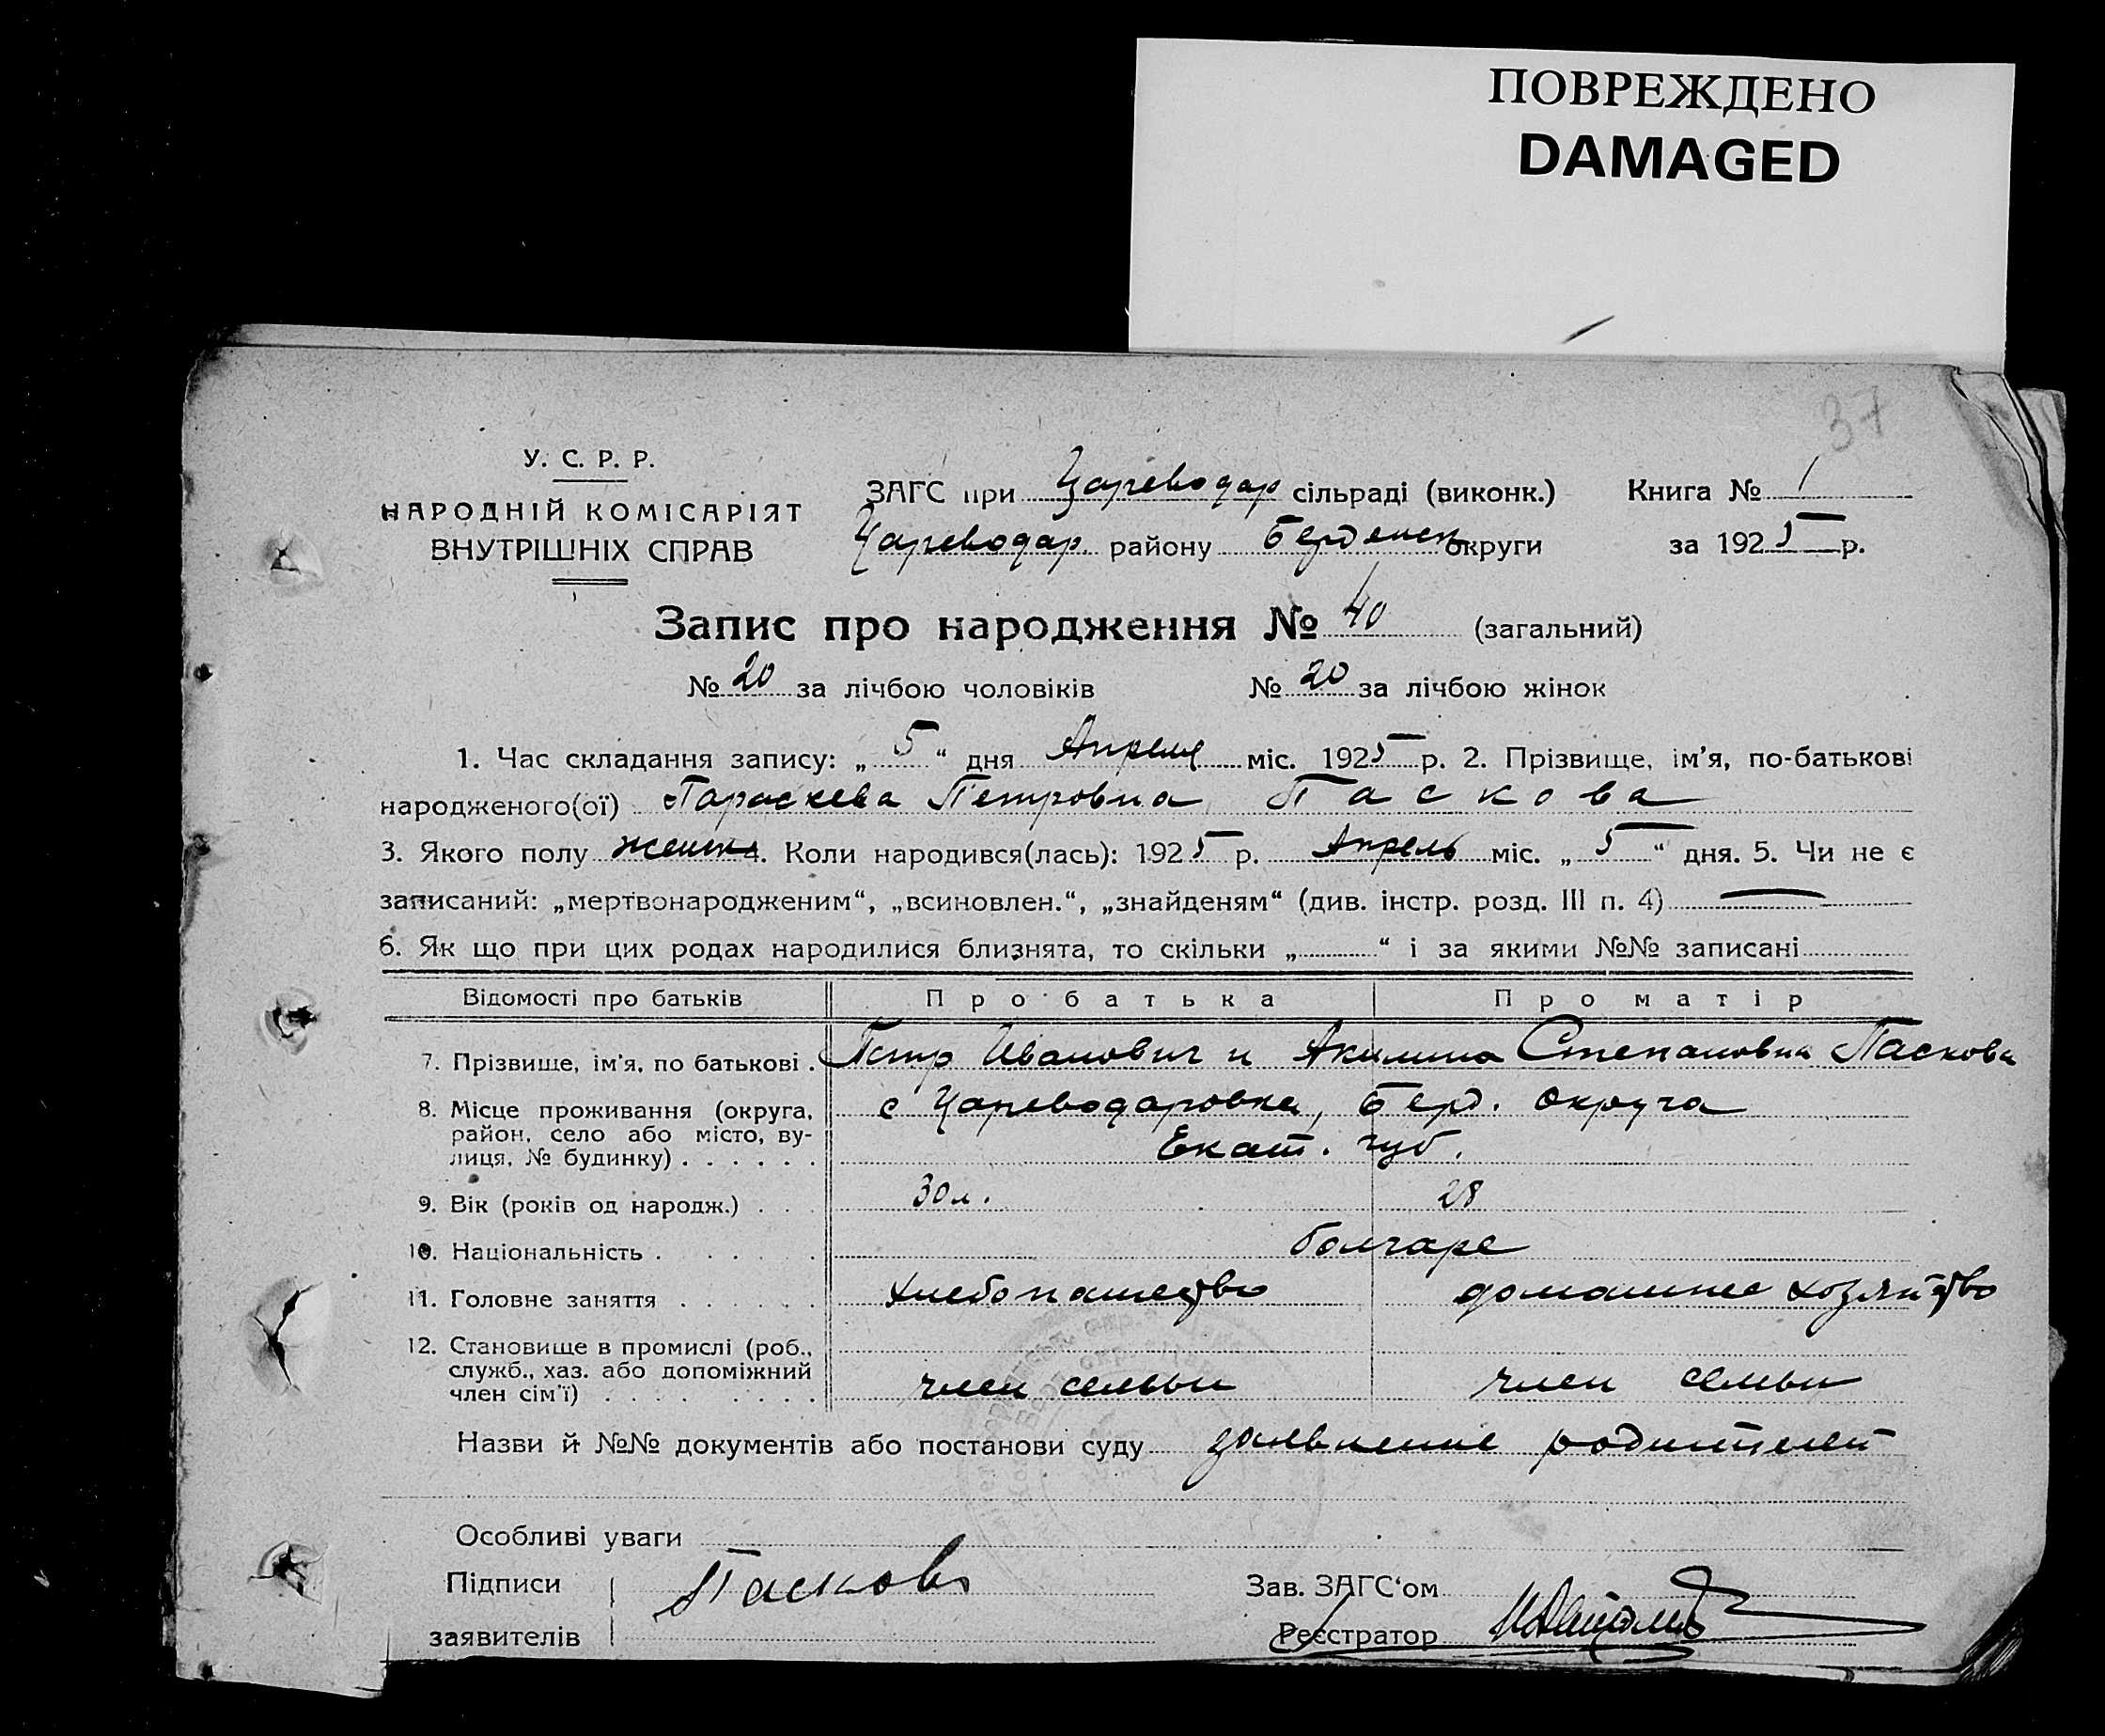 ПОВРЕЖДЕНО
DAMAGED
37
У. С. Р. Р.
НАРОДНІЙ КОМІСАРІЯТ
ВНУТРІШНІХ СПРАВ
ЗАГС при Цареводар сільраді (виконк.) Книга № 1
Цареводар. району Бердянск округи за 1925 р.
Запис про народження № 40 (загальний)
№ 20 за лічбою чоловіків № 20 за лічбою жінок
1. Час складання запису: „5“ дня Апреля міс. 1925 р. 2. Прізвище, ім'я, по-батькові
народженого(ої) Параскева Петровна Паскова
3. Якого полу женск 4. Коли народився(лась): 1925 р. Апрель міс. „5“ дня. 5. Чи не є
записаний: „мертвонародженим“, „всиновлен.“, „знайденям“ (див. інстр. розд. III п. 4) —
6. Як що при цих родах народилися близнята, то скільки „ “ і за якими №№ записані
Відомості про батьків Про батька Про матір
7. Прізвище, ім'я, по батькові . Петр Иванович и Акилина Степановна Паскова
8. Місце проживання (округа, с Цареводаровка, Берд. округа
район, село або місто, ву-
лиця, № будинку) . . . . . . Екат. губ.
9. Вік (років од народж.) . . . 30 л. 28
10. Національність . . . . . болгаре
11. Головне заняття . . . . . . хлебопашество домашнее хозяйство
12. Становище в промислі (роб.,
служб., хаз. або допоміжний
член сім'ї) . . . . . . . . член семьи член семьи
Назви й №№ документів або постанови суду заявление родителей
Особливі уваги
Підписи Пасков Зав. ЗАГС'ом
заявителів Реєстратор